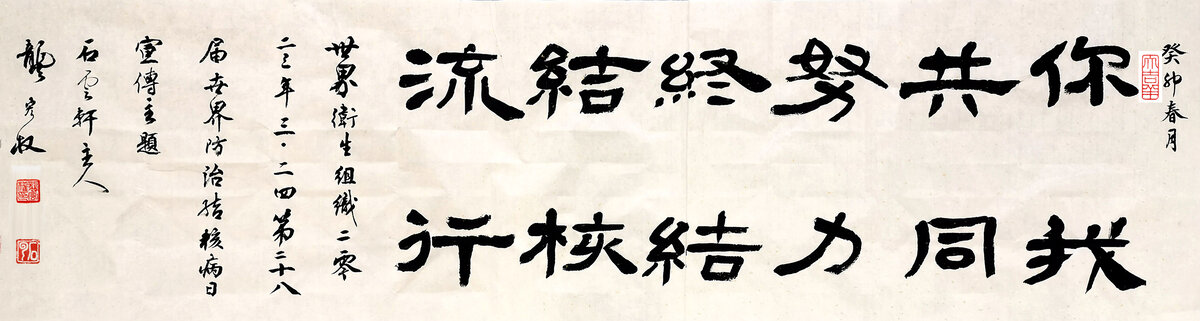 癸卯春月
大吉羊
你我
共同
努力
終結
結核
流行
世界衛生組織二零
二三年三·二四第二十八
届世界防治结核病日
宣傳主題
石雲軒主人
龔